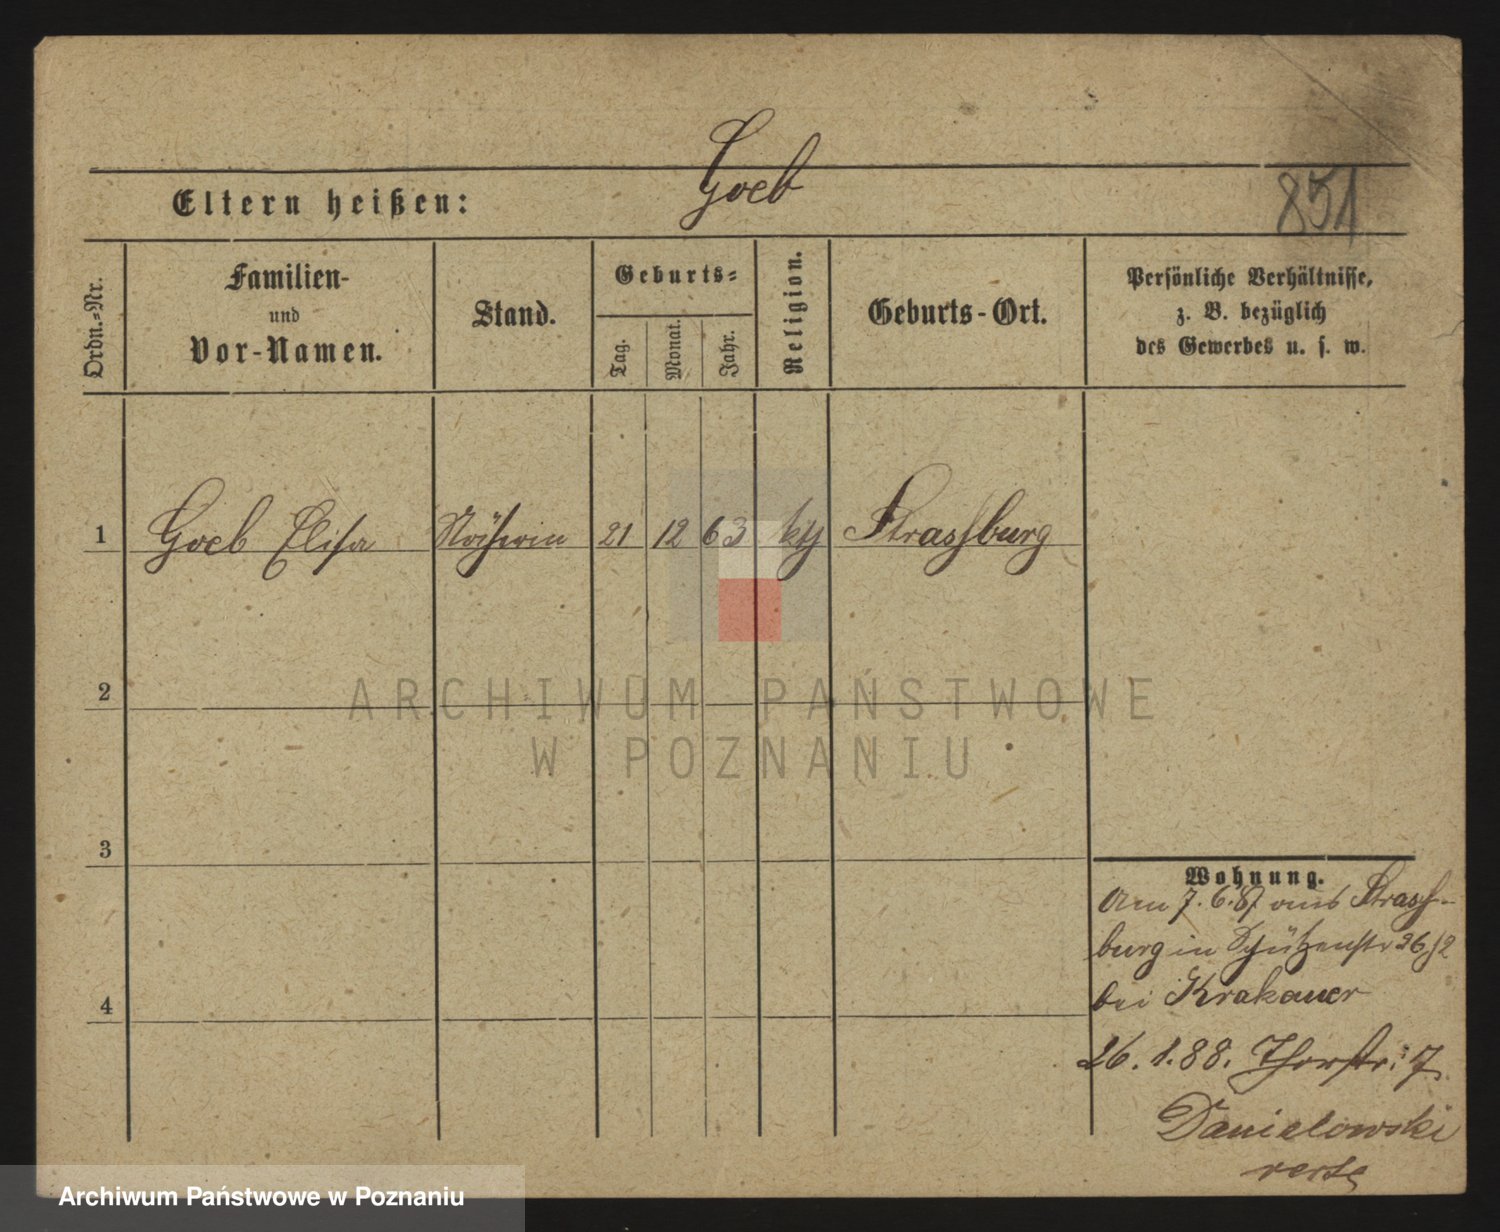 Goeb
851
Eltern heißen:
Ordn.=Nr.
Familien-
und
Vor-Namen.
Stand.
Geburts=
Tag.
Monat.
Jahr.
Religion.
Geburts-Ort.
Persönliche Verhältnisse,
z. B. bezüglich
des Gewerbes u. s. w.
1 Goeb Elisa Näherin 21 12 63 Strassburg
2
ARCHIWUM PAŃSTWOWE
W POZNANIU
3
Wohnung.
Am 7.6.87 aus Strass-
burg in Schützenstr 26/2
bei Krakauer
4
26.1.88. Thorstr: 7
Danielowski
verte
Archiwum Państwowe w Poznaniu